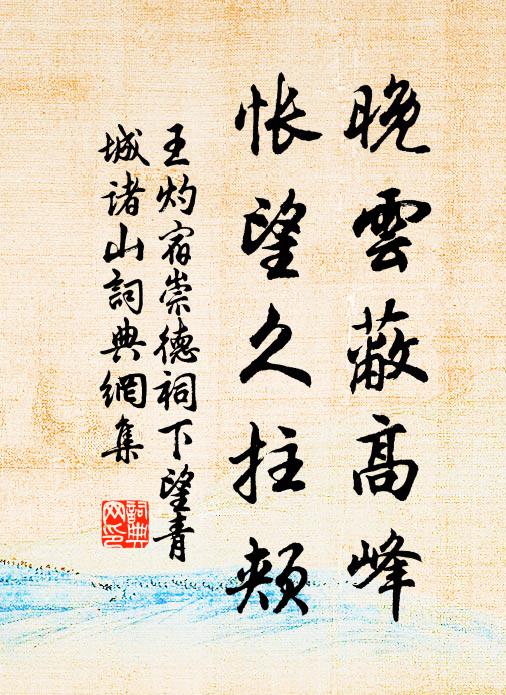 晚雲蔽高峰
悵望久拄頰
王灼宿崇德祠下望青
城諸山詞典網集
詞典网印